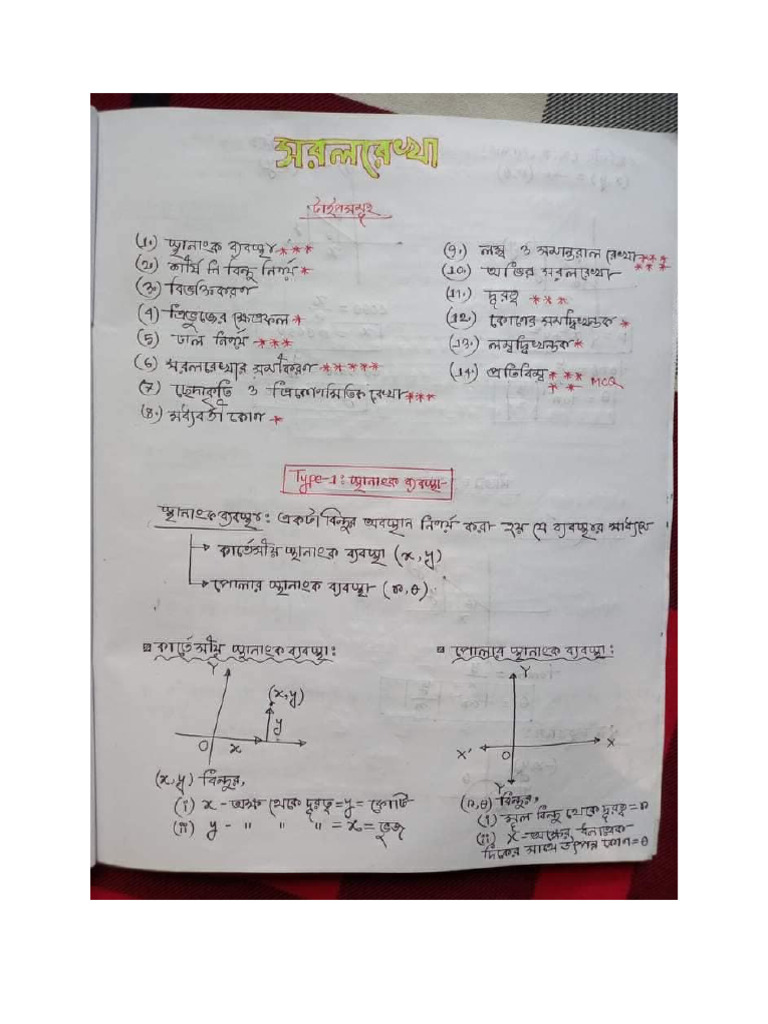 সরলরেখা
টাইপসমূহ
(1.) স্থানাংক ব্যবস্থা ***
(2.) শীর্ষ বিন্দু নির্ণয় *
(3.) বিভক্তিকরণ
(4) ত্রিভুজের ক্ষেত্রফল *
(5) ঢাল নির্ণয় ***
(6) সরলরেখার সমীকরণ *****
(7) ছেদাকৃতি ও ত্রিকোণমিতিক রেখা ***
(8.) মধ্যবর্তী কোণ *
(9.) লম্ব ও সমান্তরাল রেখা ***
(10.) অভিন্ন সরলরেখা ***
(11.) দূরত্ব ***
(12.) কোণের সমদ্বিখন্ডক *
(13.) লম্বদ্বিখন্ডক *
(14.) প্রতিবিম্ব *** ** MCQ
Type-1: স্থানাংক ব্যবস্থা
স্থানাংক ব্যবস্থা: একটা বিন্দুর অবস্থান নির্ণয় করা হয় যে ব্যবস্থার মাধ্যমে
কার্তেসীয় স্থানাংক ব্যবস্থা (x,y)
পোলার স্থানাংক ব্যবস্থা (r,θ)
কার্তেসীয় স্থানাংক ব্যবস্থা:
Y
(x,y)
y
O x
(x,y) বিন্দুর,
(i) x-অক্ষ থেকে দূরত্ব = y = কোটি
(ii) y - " " " = x = ভুজ
পোলার স্থানাংক ব্যবস্থা:
Y
X' O X
Y'
(r,θ) বিন্দুর,
(i) মূল বিন্দু থেকে দূরত্ব = r
(ii) X-অক্ষের ধনাত্মক
দিকের সাথে উৎপন্ন কোণ = θ